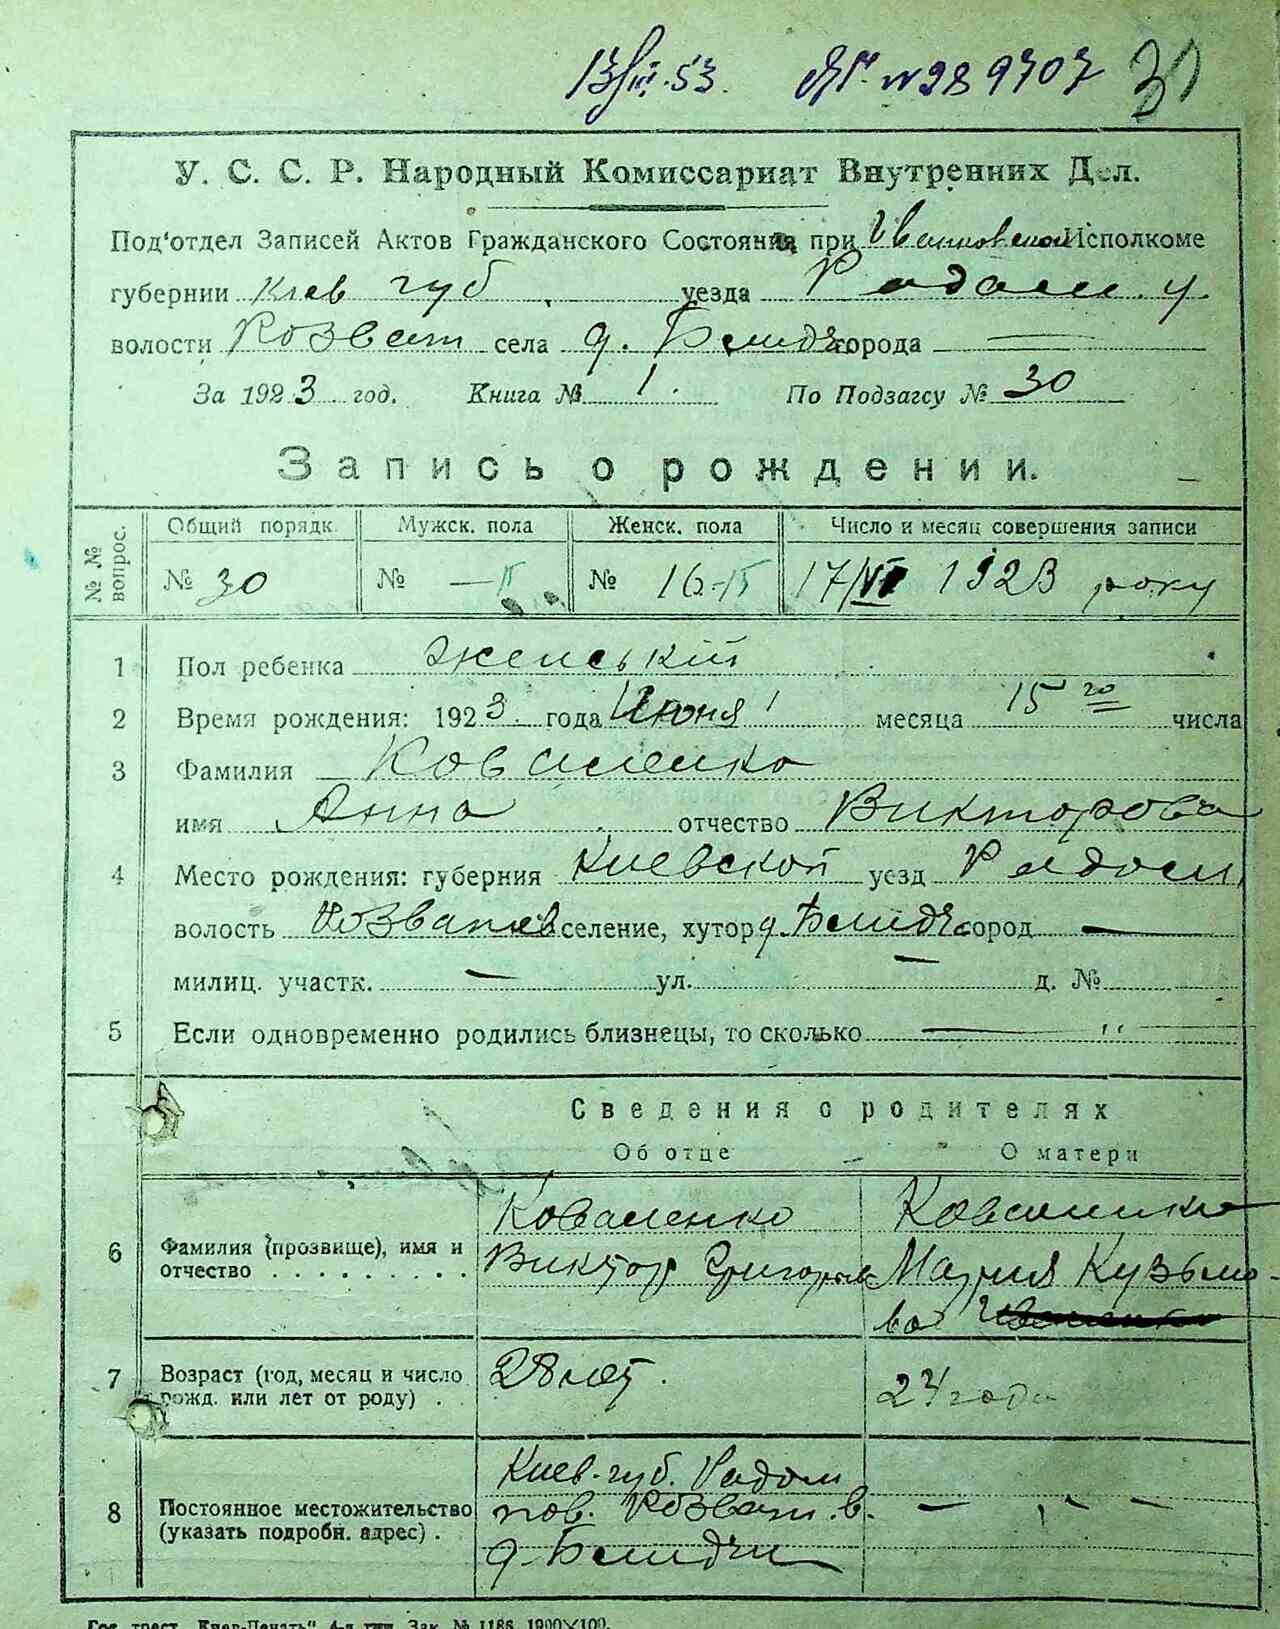 № 289707 31
У. С. С. Р. Народный Комиссариат Внутренних Дел.
Под'отдел Записей Актов Гражданского Состояния при Исполкоме
губернии Киев губ уезда Радом. у.
волости Розваж села д. города —
За 1923 год. Книга № 1. По Подзагсу № 30
Запись о рождении.
№ № вопрос. Общий порядк. Мужск. пола Женск. пола Число и месяц совершения записи
№ 30 № — 15 № 16-15 17/VI 1923 року
1 Пол ребенка женський
2 Время рождения: 1923 года Июня месяца 15 го числа
3 Фамилия Коваленко
имя Анна отчество Викторова
4 Место рождения: губерния Киевской уезд Радом
волость селение, хутор д. город —
милиц. участк. — ул. — д. №
5 Если одновременно родились близнецы, то сколько —
Сведения о родителях
Об отце О матери
6 Фамилия (прозвище), имя и отчество Коваленко Коваленко
Виктор Мария Кузьмо-
ва
7 Возраст (год, месяц и число рожд. или лет от роду) 28 лет. 24 года
8 Постоянное местожительство (указать подробн. адрес) Киев. губ. Радом — —
пов. в.
д.
Гос. трест „Киев-Печать" 4-я тип. Зак. № 1186 1900×100.